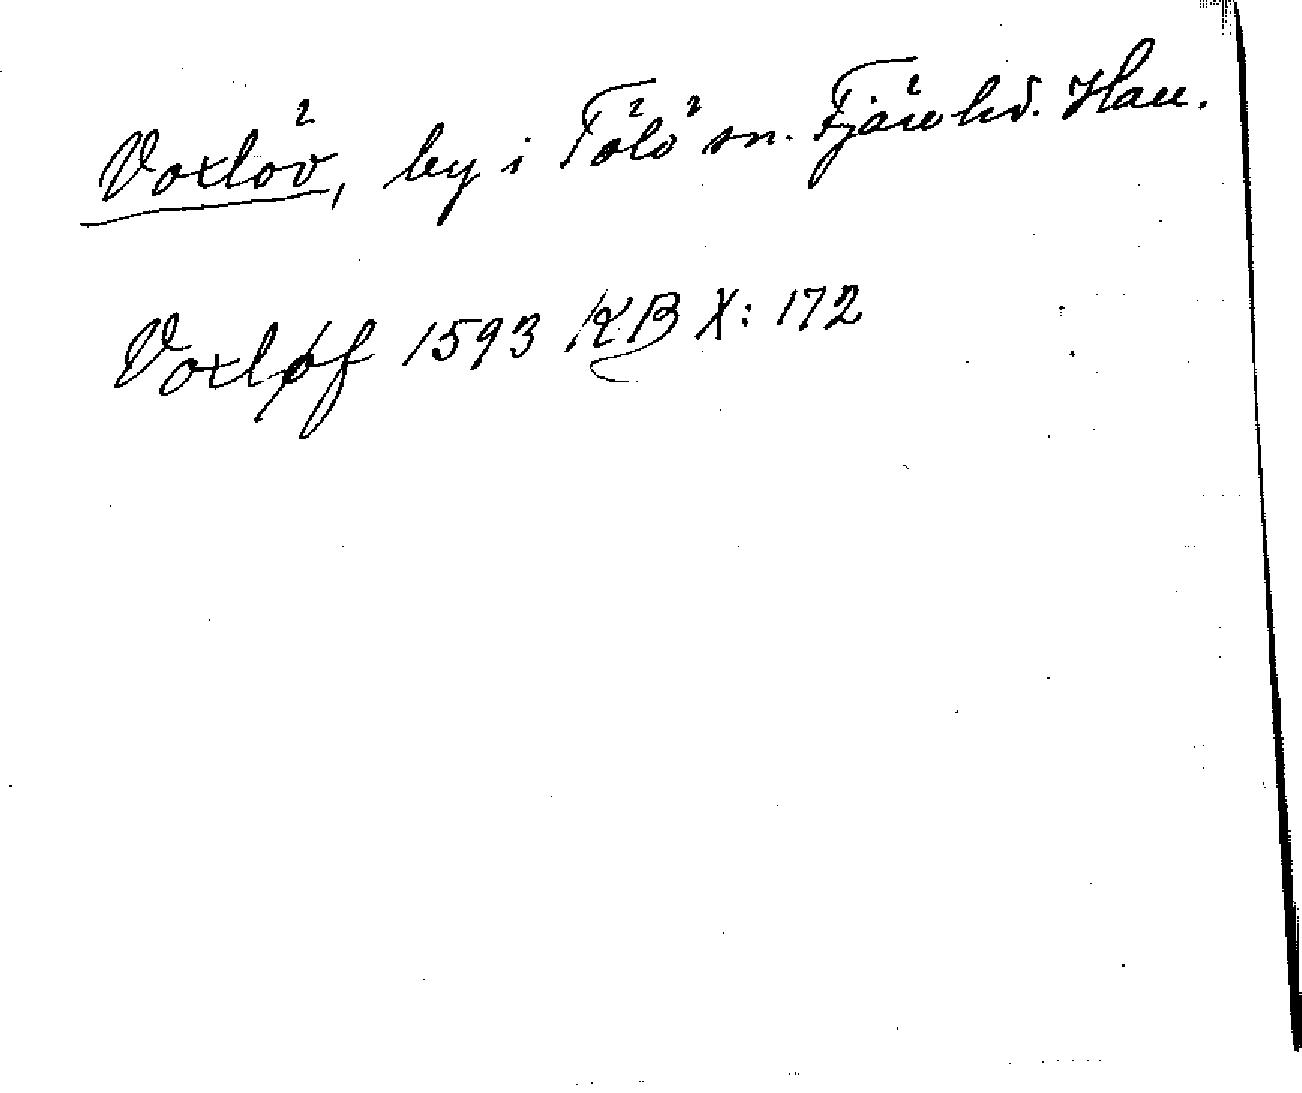 Voxlöv, by i Fölö sn. Fjäre hd. Hall.
Voxløf 1593 KB X: 172